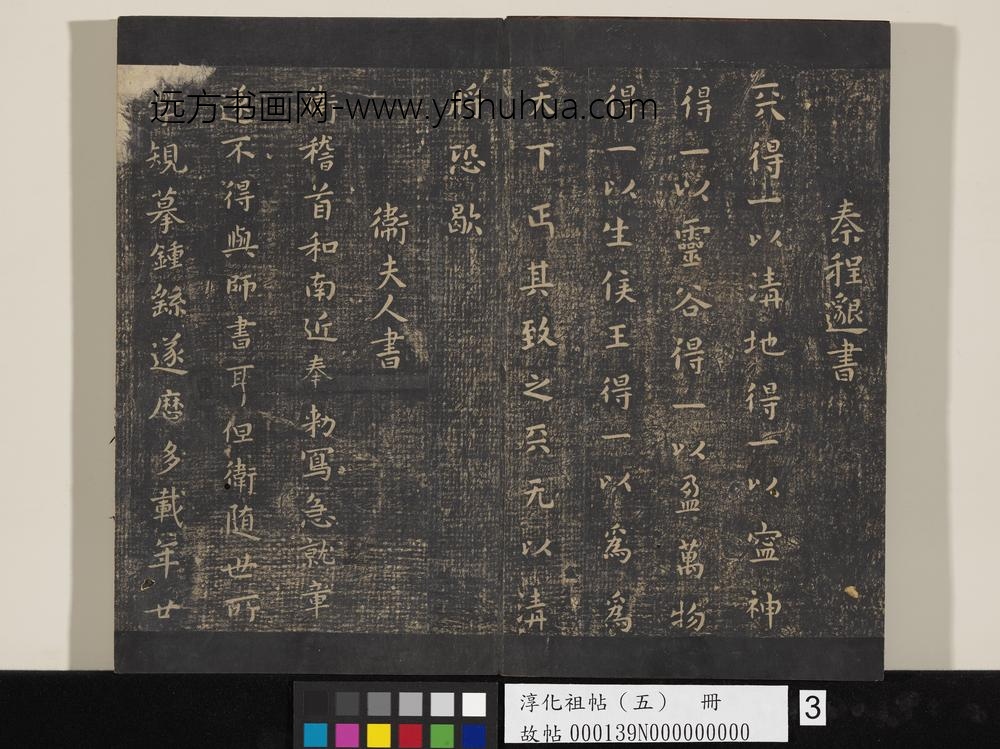 秦程邈書
天得一以清地得一以寍神
得一以靈谷得一以盈萬物
得一以生侯王得一以為為
天下正其致之天无以清
將恐歇
衛夫人書
衛稽首和南近奉勑寫急就章
不得與師書耳但衛随世所
規摹鍾繇遂歷多載年廿
远方书画网-www.yfshuhua.com
淳化祖帖（五） 冊
故帖 000139N000000000
3